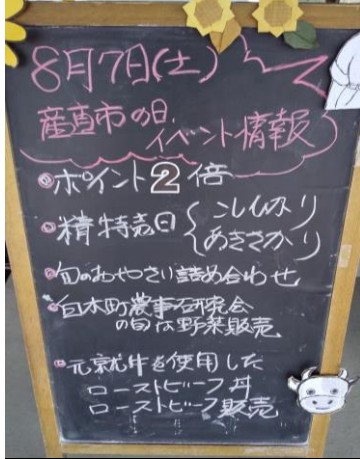 8月7日(土)
産直市の日
イベント情報
ポイント2倍
精特売日
こしひかり
あきさかり
旬のおやさい詰め合わせ
白木町農事研究会
の旬な野菜販売
元就牛を使用した
ローストビーフ丼
ローストビーフ販売